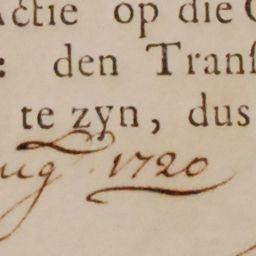 Actie op die
: den Tranſ
te zyn, dus
ug 1720